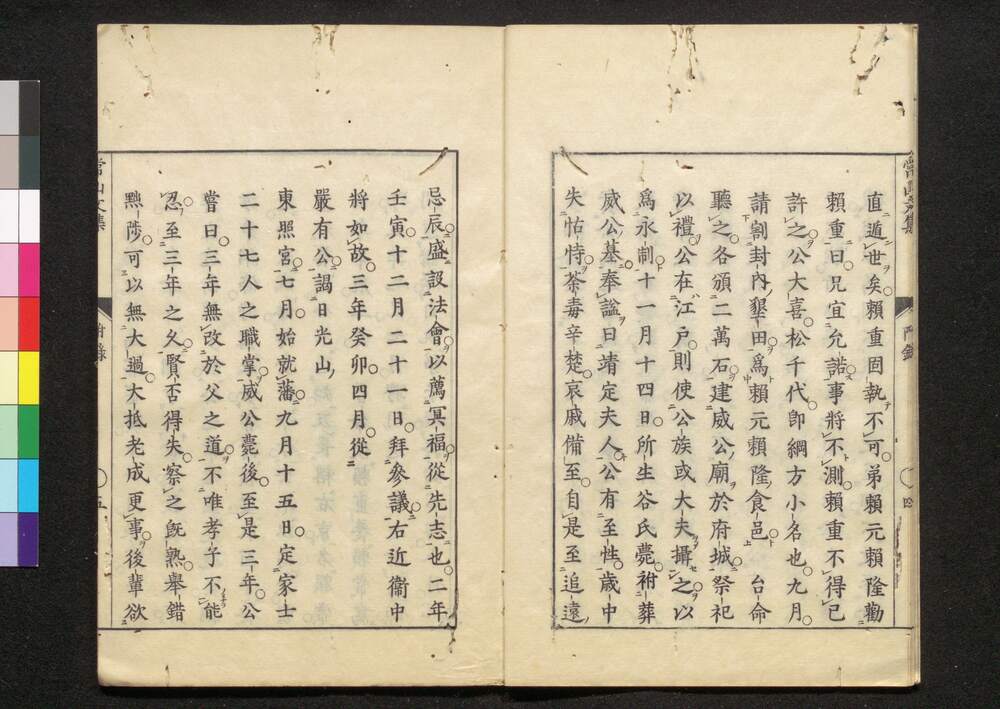 直遁世矣賴重固執不可弟賴元賴隆勸
賴重曰兄宜允諾事將不測賴重不得已
許之公大喜松千代卽綱方小名也九月
請割封內墾田爲賴元賴隆食邑 台命
聽之各頒二萬石建威公廟於府城祭祀
以禮公在江戶則使公族或大夫攝之以
爲永制十一月十四日所生谷氏薨祔葬
威公墓奉謚曰靖定夫人公有至性歲中
失怙恃荼毒辛楚哀戚備至自是至追遠
忌辰盛設法會以薦冥福從先志也二年
壬寅十二月二十一日拜參議右近衞中
將如故三年癸卯四月從
嚴有公謁日光山
東照宮七月始就藩九月十五日定家士
二十七人之職掌威公薨後至是三年公
嘗曰三年無改於父之道不唯孝子不能
忍至三年之久賢否得失察之既熟舉錯
黜陟可以無大過大抵老成更事後輩欲
常山文集
附錄
五